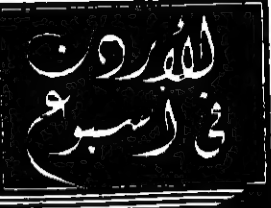 الأردن
في أسبوع